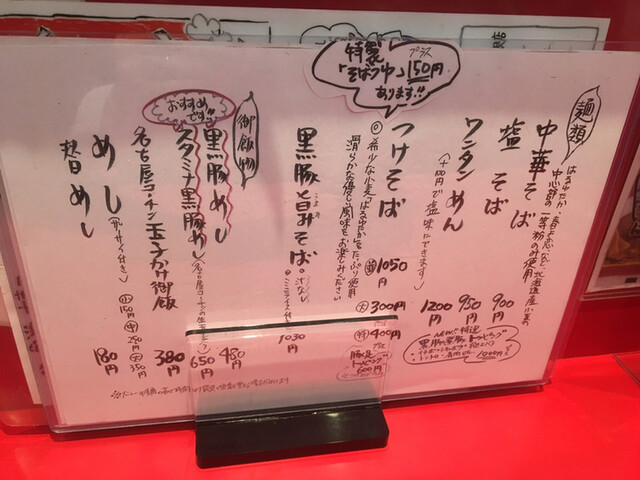 麺類
はるゆたか・春よ恋など北海道産小麦の
中心部の一等粉のみ使用
中華そば 900円
塩そば 950円
ワンタンめん 1200円
(+100円で塩味にできます)
特製
「そばつゆ」プラス150円
あります!!
つけそば 並1050円 大300円 特400円
◎希少な小麦「はるゆたか」をたっぷり使用
滑らかな優しい風味をお楽しみください
豚足
トッピング
600円
1000円
黒豚旨みそば。汁なし 1030円
御飯物
おすすめ
です!!
黒豚めし 480円
スタミナ黒豚めし 650円
名古屋コーチン玉子かけ御飯 380円
めし(ザーサイ付き) 小150円 中250円 大350円
替めし 180円